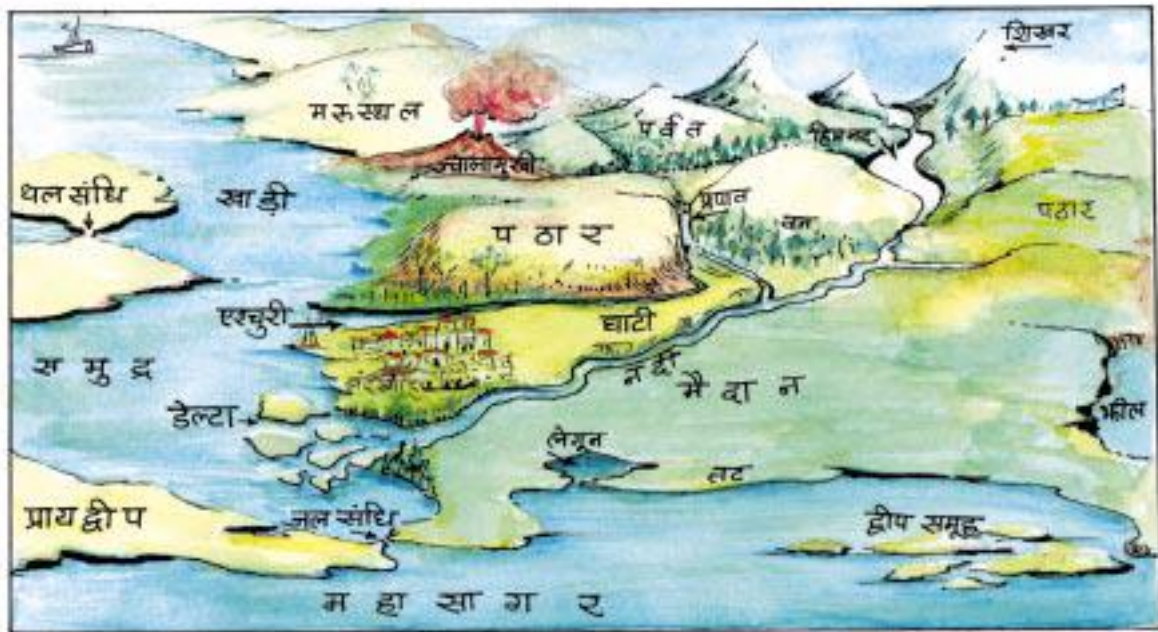 शिखर
मरुस्थल
पर्वत
हिमनद
ज्वालामुखी
थल संधि
खाड़ी
प्रपात
पठार
वन
पठार
एश्चुरी
घाटी
समुद्र
नदी
मैदान
झील
डेल्टा
लेगून
तट
प्रायद्वीप
जल संधि
द्वीप समूह
महासागर